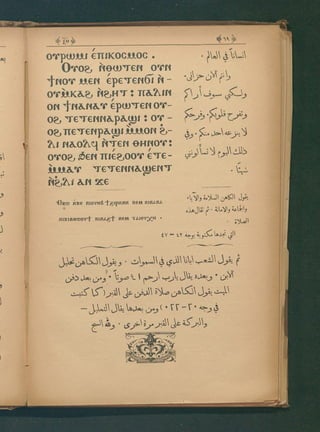 ٦٩
ⲟⲩⲣⲱⲙⲓ ⲉⲡⲓⲕⲟⲥⲙⲟⲥ .
Ⲟⲩⲟϩ ⲛ̀ⲑⲱⲧⲉⲛ ⲟⲩⲛ
ϯⲛⲟⲩ ⲙⲉⲛ ⲉⲣⲉⲧⲉⲛϭⲓ ⲛ̀-
ⲟⲩⲙ̀ⲕⲁϩ ⲛ̀ϩⲏⲧ : ⲡⲁⲗⲓⲛ
ⲟⲛ ϯⲛⲁⲛⲁⲩ ⲉⲣⲱⲧⲉⲛ ⲟⲩ-
ⲟϩ ⲧⲉⲧⲉⲛⲛⲁⲣⲁϣⲓ : ⲟⲩ-
ⲟϩ ⲡⲉⲧⲉⲛⲣⲁϣⲓ ⲙ̀ⲙⲟⲛ ϩ̀-
ⲗⲓ ⲛⲁⲟⲗϥ ⲛ̀ⲧⲉⲛ ⲑⲏⲛⲟⲩ:
ⲟⲩⲟϩ ϧⲉⲛ ⲡⲓⲉϩⲟⲟⲩ ⲉⲧⲉ-
ⲙ̀ⲙⲁⲩ ⲧⲉⲧⲉⲛⲛⲁϣⲉⲛⲧ
ⲛ̀ϩ̀ⲗⲓ ⲁⲛ ϫⲉ
انسانًا في العالم .
وانتم الان حزانى .
ولكني سوف أراكم
وتفرح قلوبكم وفرحكم
لا ينزعه احد منكم . وفي
ذلك اليوم لا تسألونني
شيئًا .
يقول الكاهن السلامة والآباء
والجماعة والامانة . ثم تقال هذه
الصلاة .
التي تجدها مكتوبة بوجه ٤٢ – ٤٧
ثم يقول الشعب ابانا الذي في السموات . ويقول الكاهن تحليل
الابن . وبعده يقال يارب ارحم ٤١ صوتاً . ومن بعد دفن
الميت يقول الكاهن صلاة الدفن على القبر كما كتبت
في وجه ٢٠ – ٢٢ ومن بعدها يقال التحليل –
والبركة على القبر مرة اخرى . ولله السبح